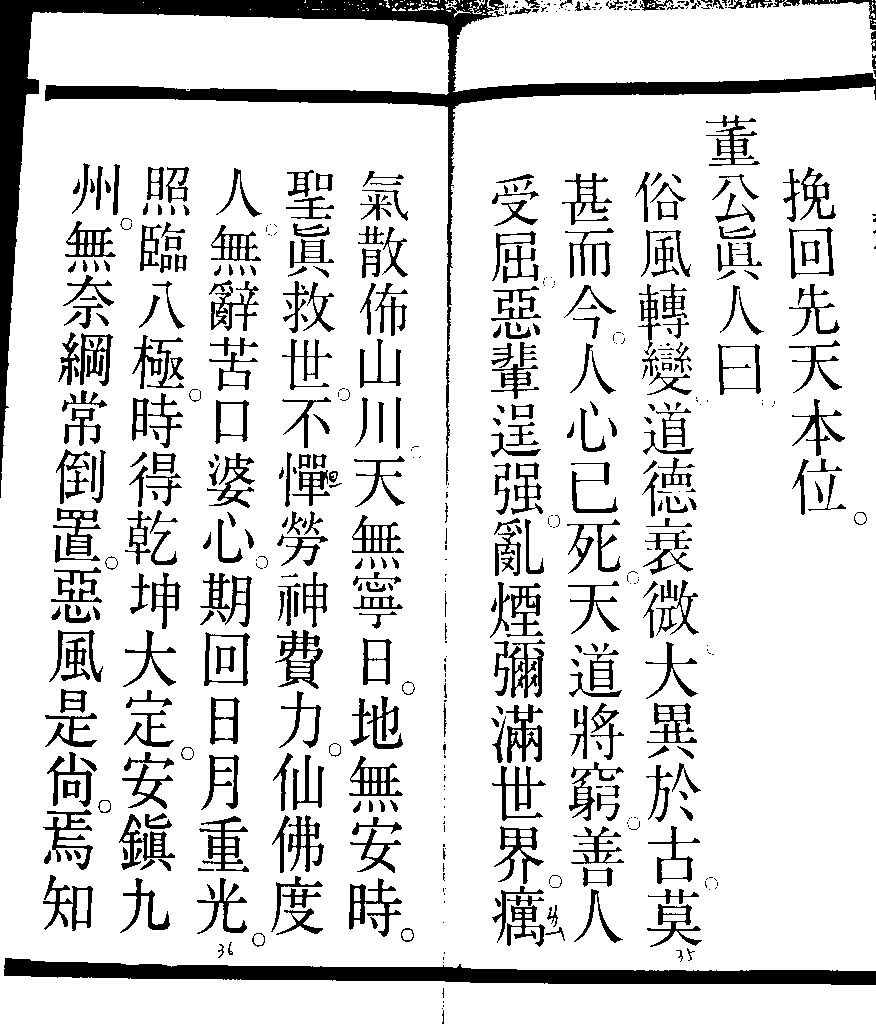 挽回先天本位。
董公眞人曰。
俗風轉變。道德衰微。大異於古。莫
甚而今。人心已死。天道將窮。善人
受屈。惡輩逞强。亂煙彌滿世界。癘
35
氣散佈山川。天無寧日。地無安時。
聖眞救世。不憚勞神費力。仙佛度
人。無辭苦口婆心。期回日月重光。
照臨八極。時得乾坤大定。安鎭九
州。無奈綱常倒置。惡風是尙。焉知
36